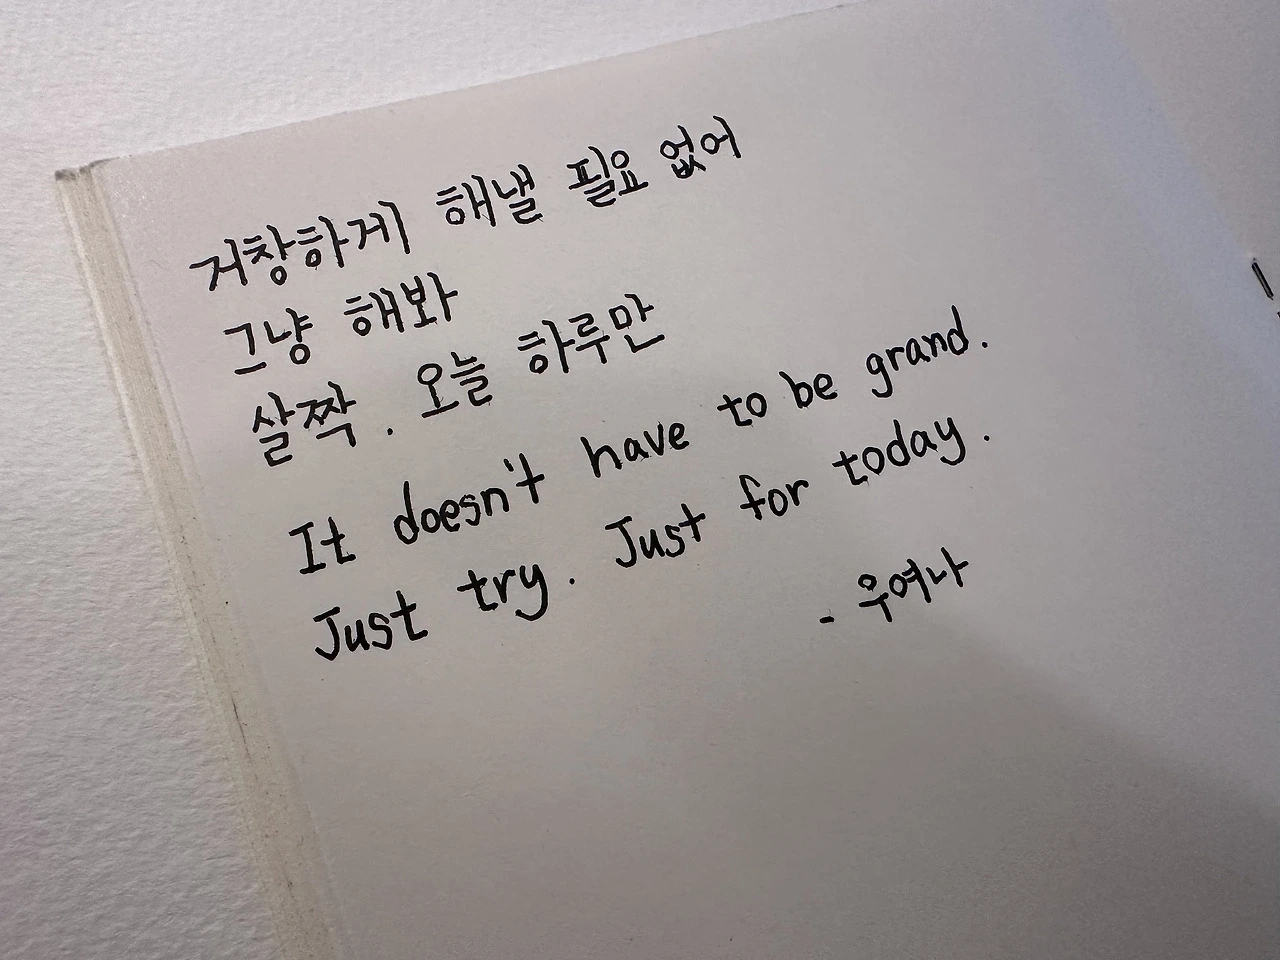 거창하게 해낼 필요 없어
그냥 해봐
살짝. 오늘 하루만
It doesn't have to be grand.
Just try. Just for today.
- 우여나